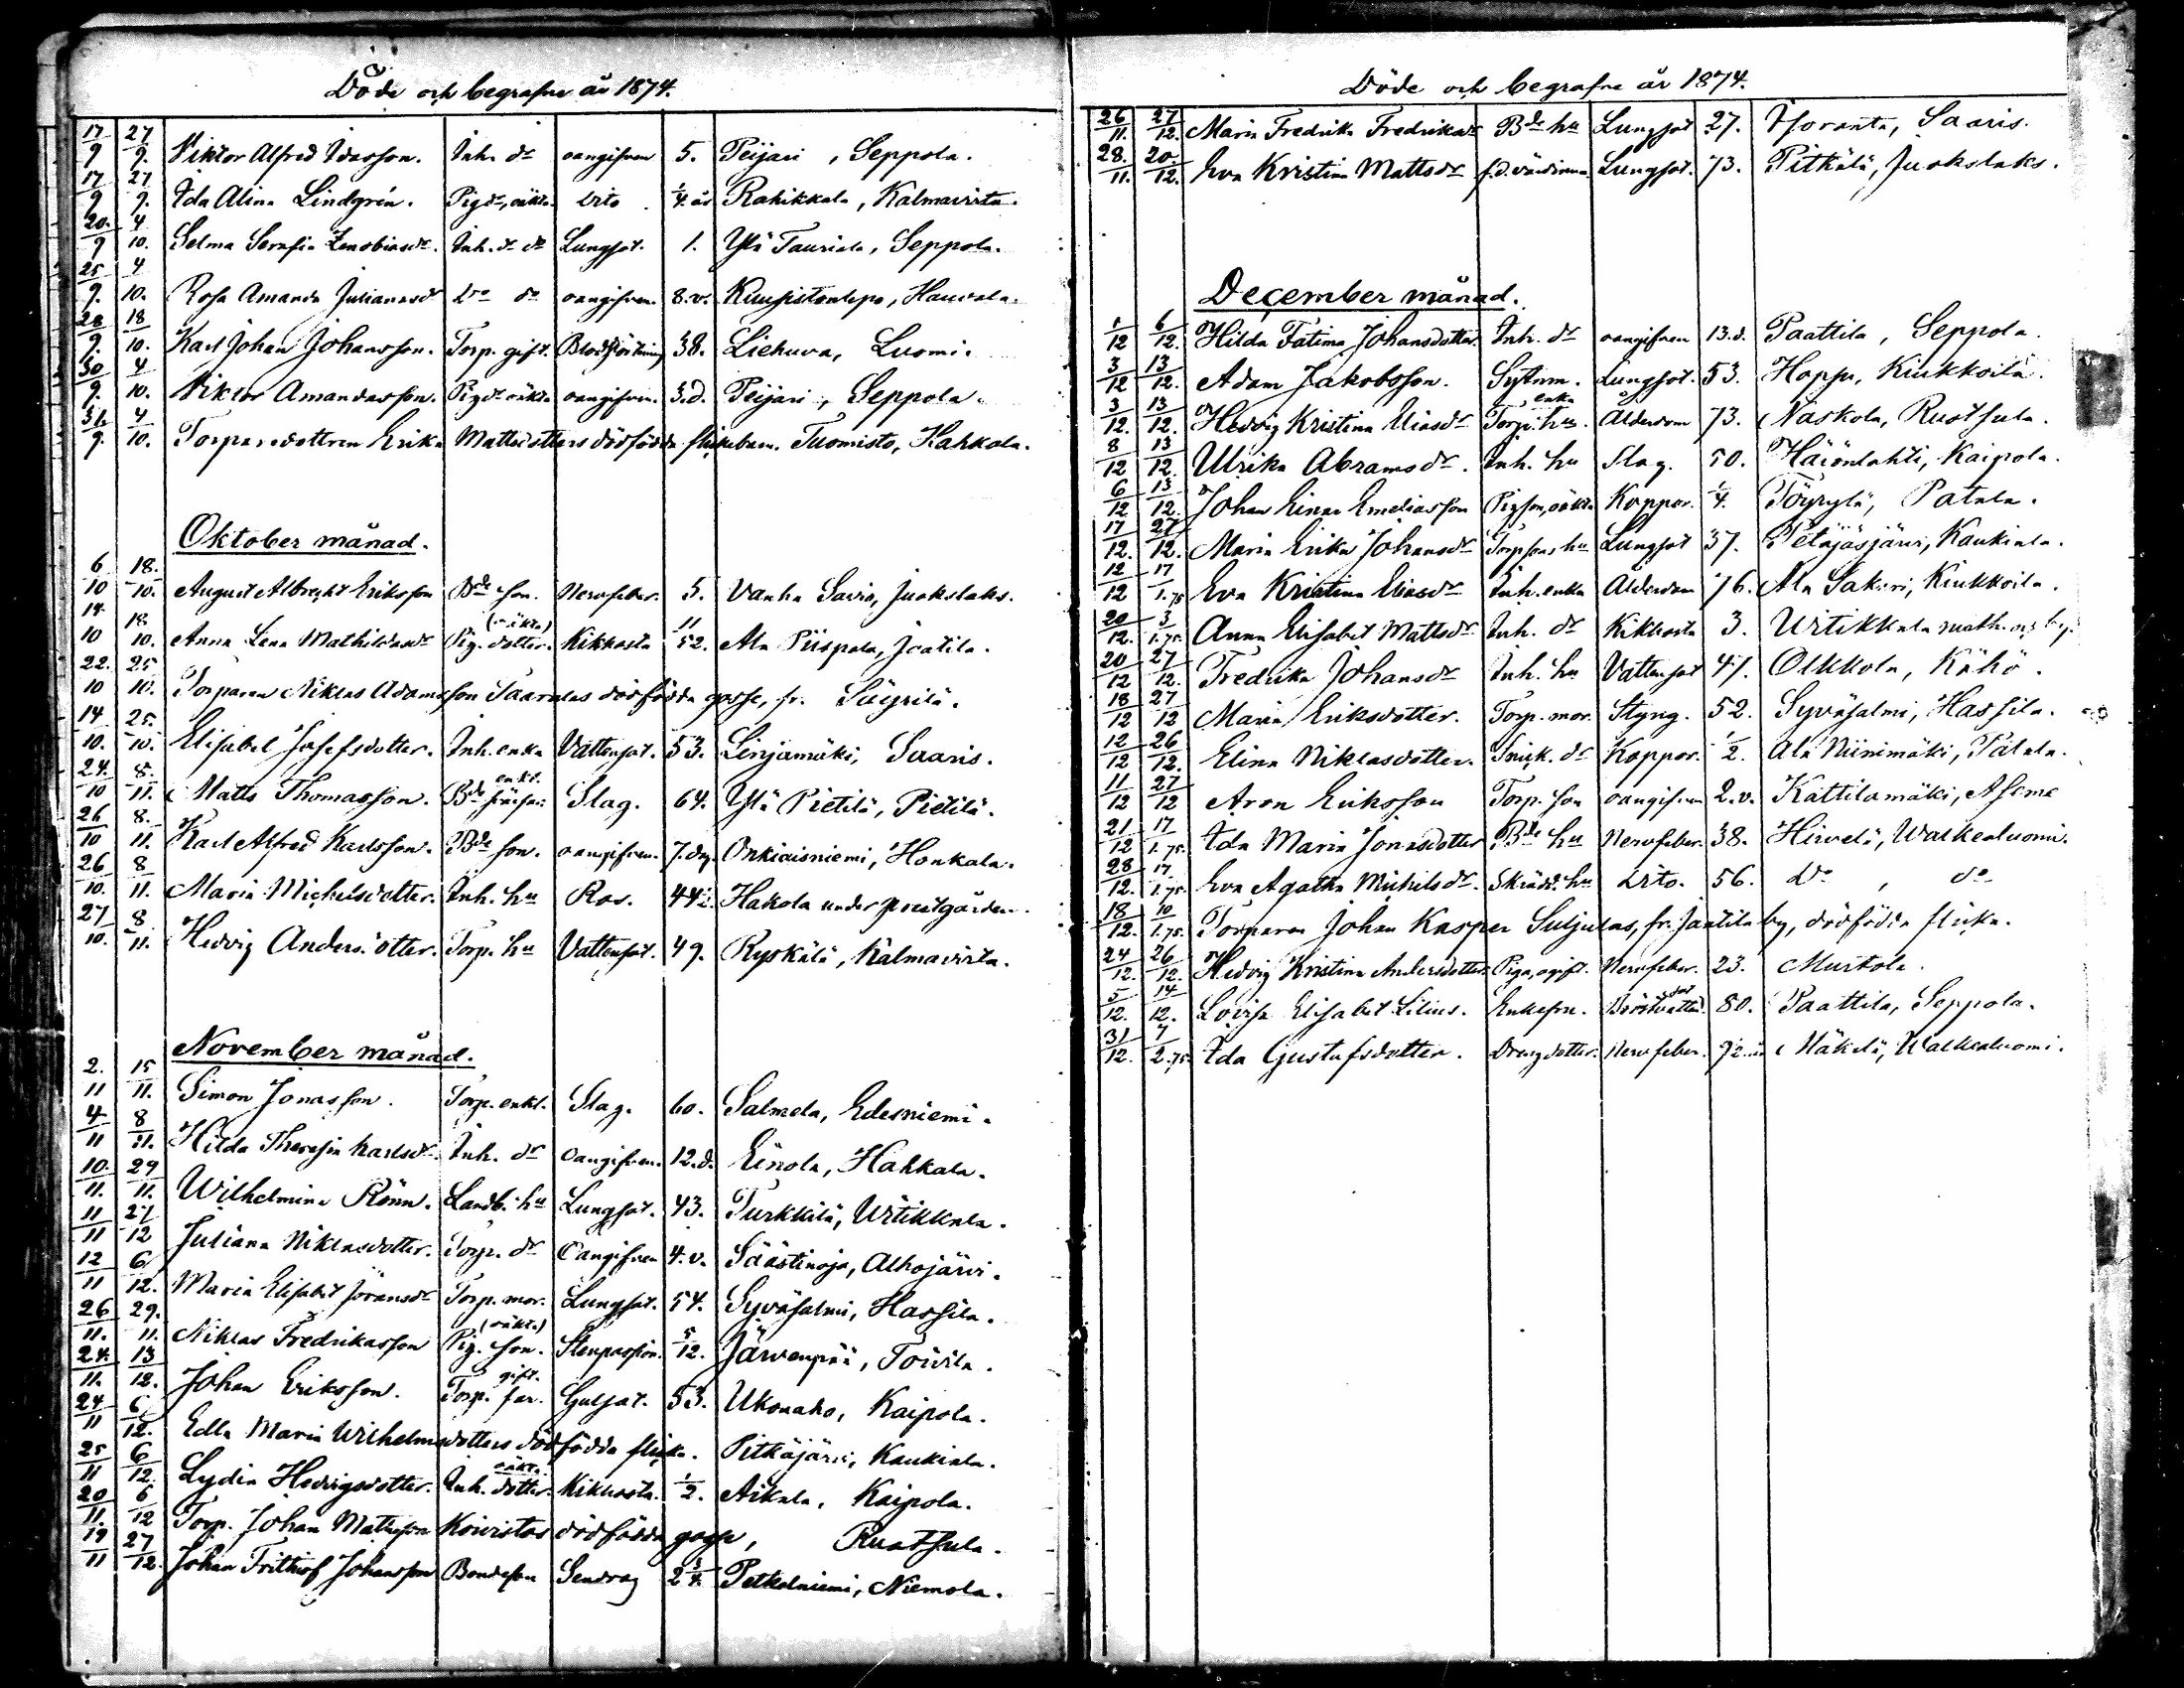 Döde och begrafne år 1874.
17/9 27/9. Viktor Alfred Idasson. Inh. dr oangifven 5. Peijari, Seppola.
17/9 27/9. Ida Alina Lindgrén. Pigdr, oäkta dito 1/4 år Rahikkala, Kalmavirta.
20./9 4/10. Selma Serafia Zenobiasdr. Inh. dr dr Lungsot. 1. Ylä Tauriala, Seppola.
25/9. 4/10. Rosa Amanda Julianasdr Do do oangifven. 8.v. Kuusistonlepo, Hauvala.
28/9. 18/10. Karl Johan Johansson. Torp. gift. Blodförtning 38. Liehuva, Luomi.
30/9. 4/10. Viktor Amandasson. Pigdr oäkta oangifven. 3.d. Peijari, Seppola.
31./9. 4/10. Torparedottren Erika Mattsdotters dödfödda flickebarn. Tuomisto, Hahkala.
Oktober månad.
6/10 18./10. August Albrecht Eriksson Bde son. Nervfeber. 5. Vanha Savio, Juokslaks.
14./10 18/10. Anna Lena Mathildasdr Pig. (oäkta) dotter. Kikhosta 11/52. Ala Piispala, Joatila.
22./10 25/10. Torparen Niklas Adamsson Saarelas dödfödda gosse, fr. Säyrilä.
14/10. 25./10. Elisabet Josefsdotter. Inh. enka Vattensot. 53. Linjamäki, Saaris.
24./10 8./11. Matts Thomasson. Bde enkl. Slag. 64. Ylä Pietilä, Pietilä.
26/10 8./11. Karl Alfred Karlsson. Bde son. oangifven. 7.dag. Onkiaisniemi, Honkala.
26/10. 8/11. Maria Michelsdotter. Inh. hu Ros. 44 1/2. Hakola under prestgården.
27/10. 8/11. Hedvig Andersdotter. Torp. hu Vattensot. 49. Ryskälä, Kalmavirta.
November månad.
2./11 15/11. Simon Jonasson. Torp. enkl. Slag. 60. Salmela, Edesniemi.
4/11 8/11. Hilda Theresia Karlsdr. Inh. dr oangifven. 12.d. Einola, Hahkala.
10./11. 29/11. Wilhelmina Rönn. Landb. hu Lungsot. 43. Turkkila, Urtikkala.
11/11 27/12 Juliana Niklasdotter. Torp. dr Oangifven 4.v. Säästinoja, Alhojärvi.
12/11 6/12. Maria Elisabet Joransdr Torp. mor. Lungsot. 54. Syväsalmi, Hassila.
26/11. 29./11. Niklas Fredrikasson Pig. (oäkta) son. Stenpassion. 5/12. Järvenpää, Toivila.
24./11. 13/12. Johan Eriksson. Torp. gift. far. Gulsot. 53. Ukonaho, Kaipola.
24/11 6/12. Edla Maria Wilhelmsdotters dödfödda flicka. Pitkäjärvi, Kaukiala.
25/11 6/12. Lydia Hedvigsdotter. Inh. oäkta dotter. Kikhosta. 1/2. Aikala, Kaipola.
20/11. 6/12 Torp. Johan Mattsson Koivistos dödfödda gosse, Ruotsula.
19/11 27/12. Johan Frithiof Johansson Bondeson Sendrag 2 3/4. Petkelniemi, Niemola.
Döde och begrafne år 1874.
26/11. 27/12. Maria Fredrika Fredriksdr Bde hu Lungsot 27. Isoranta, Saaris.
28./11. 20./12. Eva Kristina Mattsdr f.d. värdinna. Lungsot. 73. Pitkälä, Juokslaks.
December månad.
1/12 6/12. Hilda Fatima Johansdotter. Inh. dr oangifven 13.d. Paattila, Seppola.
3/12 13/12. Adam Jakobsson. Sytnm. Lungsot. 53. Hoppu, Kiukkoila.
3/12. 13/12. Hedvig Kristina Eliasdr Torp. enka hu. Ålderdom 73. Naskola, Ruotsula.
8/12 13/12. Ulrika Abramsdr. Inh. hu Slag. 50. Häiönlahti, Kaipola.
6/12 13/12. Johan Einar Emeliasson Pigson, oäkta Koppor. 1/4. Töyrylä, Patala.
17/12. 27/12. Maria Erika Johansdr Torpsons hu Lungsot 37. Petäjäsjärvi, Kaukiala.
12/12 17/1.75 Eva Kristina Eliasdr Inh. enka Ålderdom 76. Ala Sakari, Kiukkoila.
20/12. 3/1.75. Anna Elisabet Mattsdr Inh. dr Kikhosta 3. Urtikkala
20/12 27/12. Fredrika Johansdr Inh. hu Vattensot 47. Olkkola, Kähö.
18/12 27/12 Maria Eriksdotter. Torp. mor. Styng. 52. Syväsalmi, Hassila.
12/12 26/12. Elina Niklasdotter. Snick. dr Koppor. 1/2. Ala Niinimäki, Patala.
11/12 27/12 Aron Eriksson Torp. son oangifven 2.v. Kattilamäki, Aseme
21/12 17/1.75. Ida Maria Jonasdotter Bde hu Nervfeber. 38. Hirvelä, Walkealuomi.
28/12. 17/1.75. Eva Agatha Michelsdr. Skrädd. hu Dito. 56. Do, do
18/12. 10/1.75. Torparen Johan Kasper Suljulas, fr. Jaatila by, dödfödda flicka.
24/12. 26/12. Hedvig Kristina Andersdotter. Piga, ogift. Nervfeber. 23. Murtola.
5/12. 14/12. Lovisa Elisabet Lilius. Enkefru. Bröstvattensot. 80. Paattila, Seppola.
31/12. 7/2.75 Ida Gustafsdotter. Drengdotter. Nervfeber. Mäkelä, Walkealuomi.